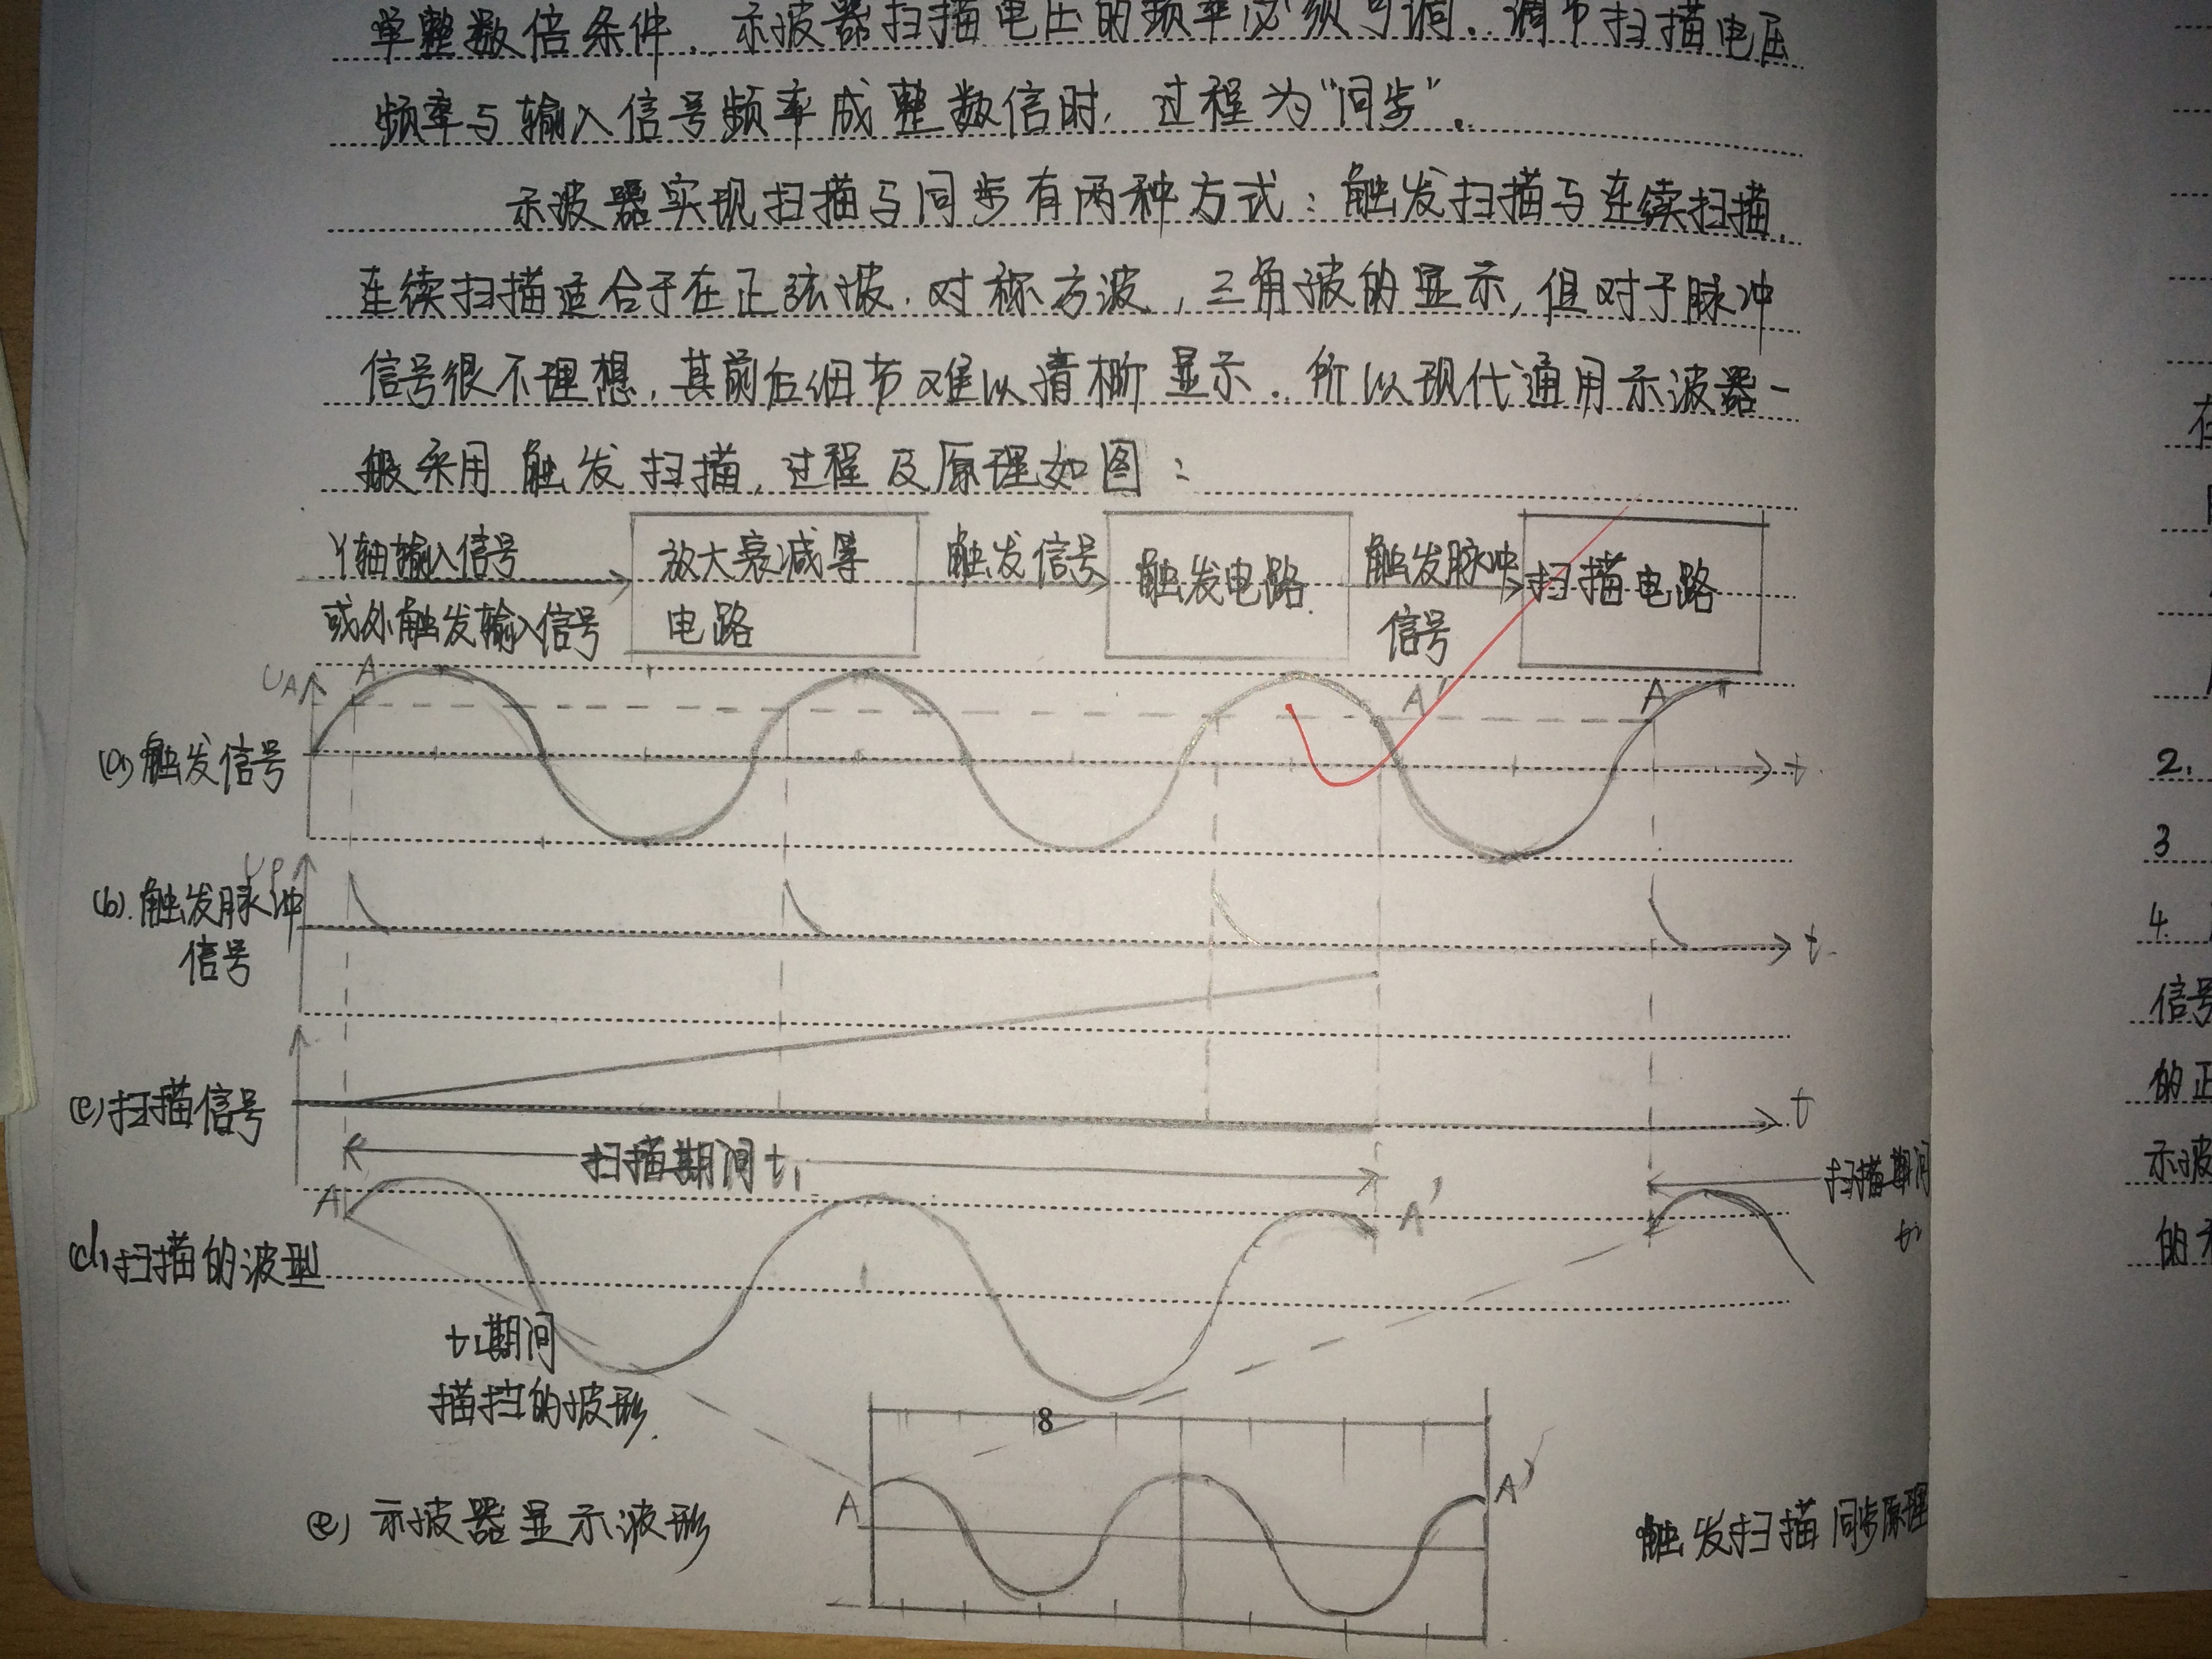 单整数倍条件. 示波器扫描电压的频率必须可调. 调节扫描电压
频率与输入信号频率成整数倍时, 过程为“同步”.
示波器实现扫描与同步有两种方式: 触发扫描与连续扫描.
连续扫描适合于在正弦波. 对称方波, 三角波的显示, 但对于脉冲
信号很不理想, 其前后细节难以清楚显示. 所以现代通用示波器一
般采用 触发扫描, 过程及原理如图:
Y轴输入信号
或外触发输入信号
放大衰减等
电路
触发信号
触发电路.
触发脉冲
信号
扫描电路
UA
A
A'
A
(a)触发信号
t.
UP
(b).触发脉冲
信号
t.
(c)扫描信号
t
扫描期间t₁
扫描期间
A
A'
(d)扫描的波型
t₁期间
描扫的波形.
8
A
A'
(e) 示波器显示波形
触发扫描同步原理
2.
3
4.
信号
的正
示波
的